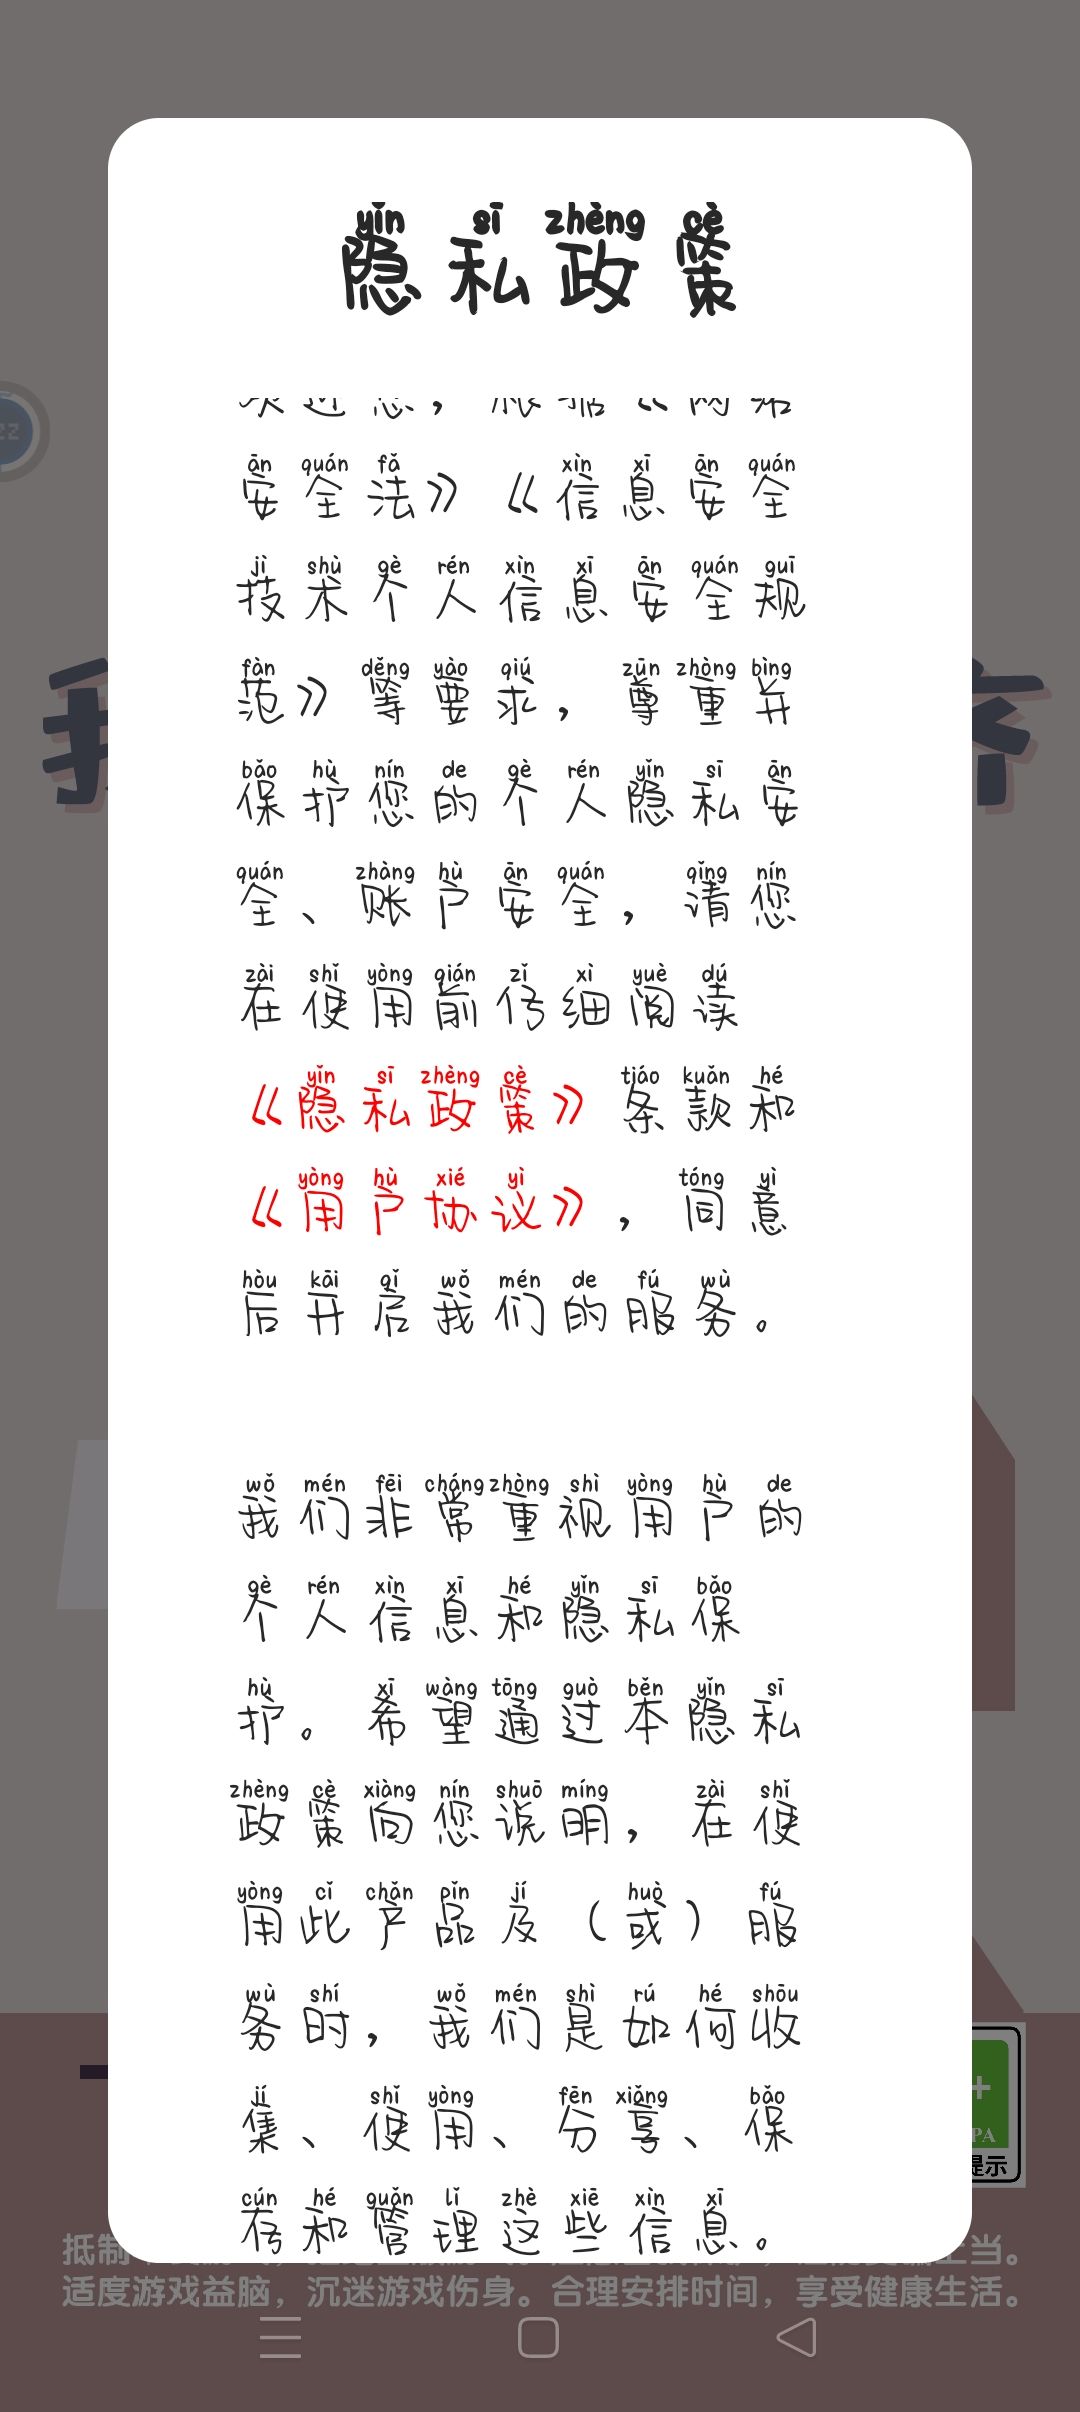 yǐn sī zhèng cè
隐私政策
ān quán fǎ xìn xī ān quán
安全法》《信息安全
jì shù gè rén xìn xī ān quán guī
技术个人信息安全规
fàn děng yào qiú zūn zhòng bìng
范》等要求，尊重并
bǎo hù nín de gè rén yǐn sī ān
保护您的个人隐私安
quán zhàng hù ān quán qǐng nín
全、账户安全，请您
zài shǐ yòng qián zǐ xì yuè dú
在使用前仔细阅读
yǐn sī zhèng cè tiáo kuǎn hé
《隐私政策》条款和
yòng hù xié yì tóng yì
《用户协议》，同意
hòu kāi qǐ wǒ mén de fú wù
后开启我们的服务。
wǒ mén fēi cháng zhòng shì yòng hù de
我们非常重视用户的
gè rén xìn xī hé yǐn sī bǎo
个人信息和隐私保
hù xī wàng tōng guò běn yǐn sī
护。希望通过本隐私
zhèng cè xiàng nín shuō míng zài shǐ
政策向您说明，在使
yòng cǐ chǎn pǐn jí huò fú
用此产品及（或）服
wù shí wǒ mén shì rú hé shōu
务时，我们是如何收
jí shǐ yòng fēn xiǎng bǎo
集、使用、分享、保
cún hé guǎn lǐ zhè xiē xìn xī
存和管理这些信息。
适度游戏益脑，沉迷游戏伤身。合理安排时间，享受健康生活。